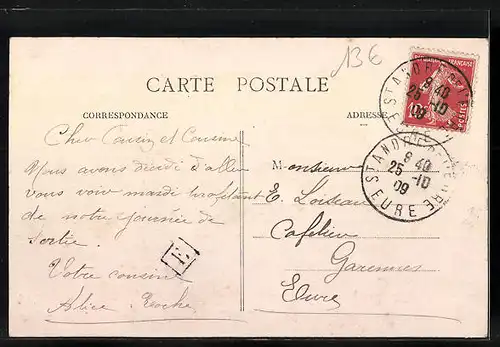 136
CARTE POSTALE
CORRESPONDANCE
ADRESSE
Cher Cousin et Cousine
Nous avons décidé d'aller
vous voir mardi profitant
de notre journée de
sortie.
Votre cousine
Alice
E
Monsieur
E. Loiseau
Cafetier
Garennes
Eure
POSTES
10
ST ANDRE DE L'EURE
8 40
25 -10
09
EURE
ST ANDRE DE L'EURE
8 40
25 -10
09
EURE